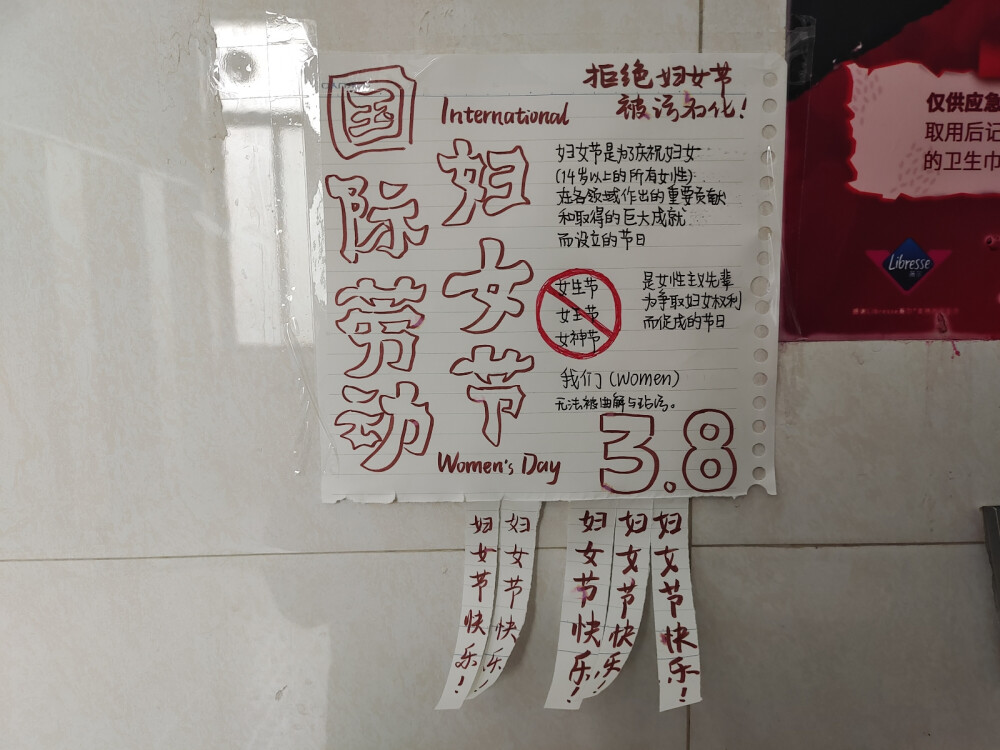 国际劳动
妇女节
International
Women's Day
拒绝妇女节
被污名化!
妇女节是为了庆祝妇女
(14岁以上的所有女性)
在各领域作出的重要贡献
和取得的巨大成就
而设立的节日
女生节
女王节
女神节
是女性主义先辈
为争取妇女权利
而促成的节日
我们(women)
无法被曲解与玷污。
3.8
妇女节快乐!
妇女节快乐!
妇女节快乐!
妇女节快乐!
妇女节快乐!
仅供应急
取用后记
的卫生巾
Libresse